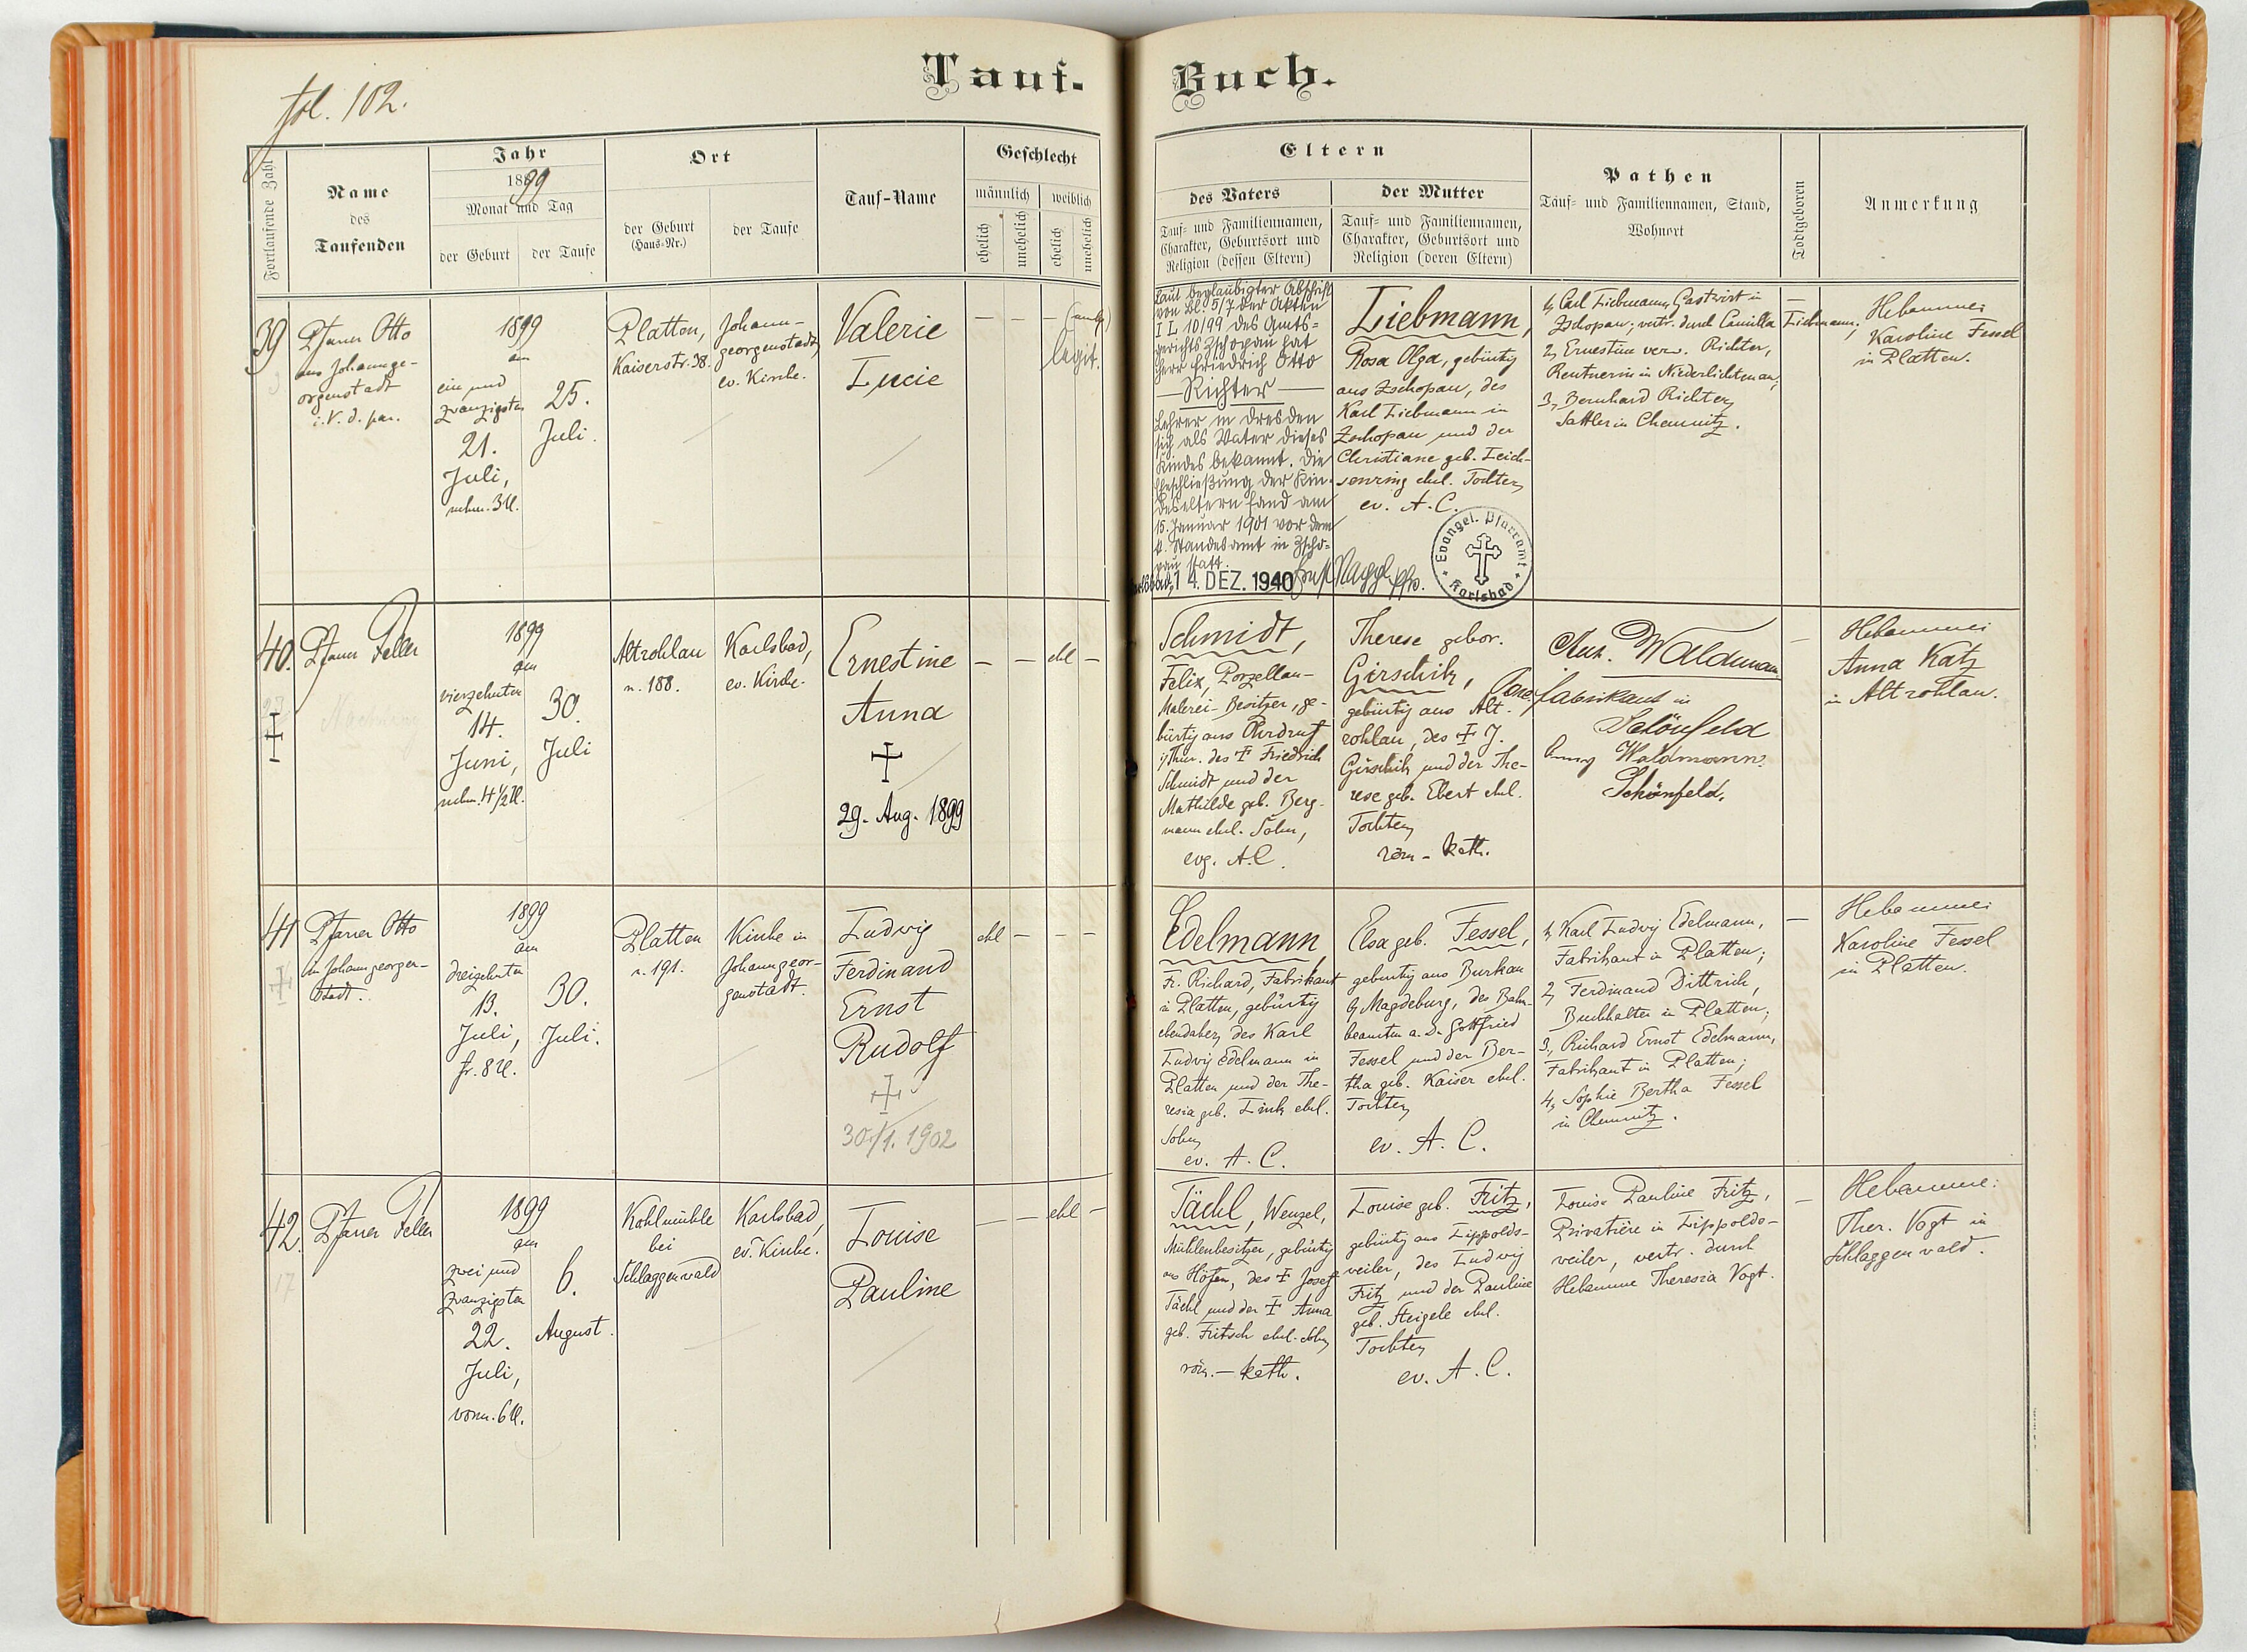 fol. 102.
Tauf-
Buch.
Fortlaufende Zahl
Name
des
Taufenden
Jahr
1899
Monat und Tag
der Geburt
der Taufe
Ort
der Geburt
(Haus-Nr.)
der Taufe
Tauf-Name
Geschlecht
männlich
weiblich
ehelich
unehelich
ehelich
unehelich
Eltern
des Vaters
Tauf- und Familiennamen,
Charakter, Geburtsort und
Religion (dessen Eltern)
der Mutter
Tauf- und Familiennamen,
Charakter, Geburtsort und
Religion (deren Eltern)
Pathen
Tauf- und Familiennamen, Stand,
Wohnort
Todtgeboren
Anmerkung
39
Pfarrer Otto
aus Johannge-
orgenstadt
i. V. d. par.
1899
am
ein und
zwanzigsten
21.
Juli,
nchm. 3 U.
25.
Juli.
Platten,
Kaiserstr. 38.
Johann-
georgenstadt,
ev. Kirche.
Valerie
Lucie
— — —
legit.
Laut beglaubigter Abschrift
von Bl. 5/7 der Akten
I L 10/99 des Amts-
gerichts Zschopau hat
Herr Friedrich Otto
— Richter —
Lehrer in Dresden
sich als Vater dieses
Kindes bekannt. Die
Eheschließung der Kin-
deseltern fand am
15. Januar 1901 vor dem
k. Standesamt in Zscho-
pau statt.
Karlsbad, 14. DEZ. 1940
Evangel. Pfarramt
Karlsbad
Liebmann,
Rosa Olga, gebürtig
aus Zschopau, des
Karl Liebmann in
Zschopau und der
Christiane geb. Leich-
senring ehel. Tochter,
ev. A. C.
1, Carl Liebmann, Gastwirt in
Zschopau; vertr. durch Camilla Liebmann;
2, Ernestine verw. Richter,
Rentnerin in Niederlichtenau;
3, Bernhard Richter,
Sattler in Chemnitz.
—
Hebamme:
Karoline Fessel
in Platten.
40.
Pfarrer Feller
1899
am
vierzehnten
14.
Juni,
nchm. 4 1/2 U.
30.
Juli
Altrohlau
n. 188.
Karlsbad,
ev. Kirche.
Ernestine
Anna
29. Aug. 1899
— — ehl —
Schmidt,
Felix, Porzellan-
Malerei-Besitzer, ge-
bürtig aus Ohrdruf
i/Thür. des † Friedrich
Schmidt und der
Mathilde geb. Berg-
mann ehel. Sohn,
evg. A. C.
Therese gebor.
Girschik,
gebürtig aus Alt-
rohlau, des † J.
Girschik und der The-
rese geb. Ebert ehel.
Tochter,
röm-kath.
Ant. Waldmann
Porz.fabrikant in
Schönfeld
Anny Waldmann.
Schönfeld.
—
Hebamme:
Anna Katz
in Altrohlau.
41
Pfarrer Otto
in Johanngeorgen-
stadt.
1899
am
dreizehnten
13.
Juli,
fr. 8 U.
30.
Juli.
Platten
n. 191.
Kirche in
Johanngeor-
genstadt.
Ludwig
Ferdinand
Ernst
Rudolf
30./1. 1902
ehl — — —
Edelmann,
Fr. Richard, Fabrikant
in Platten, gebürtig
ebendaher, des Karl
Ludwig Edelmann in
Platten und der The-
resia geb. Link ehel.
Sohn,
ev. A. C.
Elsa geb. Fessel,
gebürtig aus Burkau
b/ Magdeburg, des Bahn-
beamten a. D. Gottfried
Fessel und der Ber-
tha geb. Kaiser ehel.
Tochter,
ev. A. C.
1, Karl Ludwig Edelmann,
Fabrikant in Platten;
2, Ferdinand Dittrich,
Buchhalter in Platten;
3, Richard Ernst Edelmann,
Fabrikant in Platten;
4, Sophie Bertha Fessel
in Chemnitz.
—
Hebamme:
Karoline Fessel
in Platten.
42.
17
Pfarrer Feller
1899
am
zwei und
zwanzigsten
22.
Juli,
vorm. 6 U.
6.
August.
Kohlmühle
bei
Schlaggenwald
Karlsbad,
ev. Kirche.
Louise
Pauline
— — ehl —
Tächl, Wenzel,
Mühlenbesitzer, gebürtig
aus Höfen, des † Josef
Tächl und der † Anna
geb. Fritsch ehel. Sohn,
röm.-kath.
Louise geb. Fritz,
gebürtig aus Lippolds-
weiler, des Ludwig
Fritz und der Pauline
geb. Steigele ehel.
Tochter,
ev. A. C.
Louise Pauline Fritz,
Privatière in Lippolds-
weiler, vertr. durch
Hebamme Theresia Vogt.
—
Hebamme:
Ther. Vogt in
Schlaggenwald.